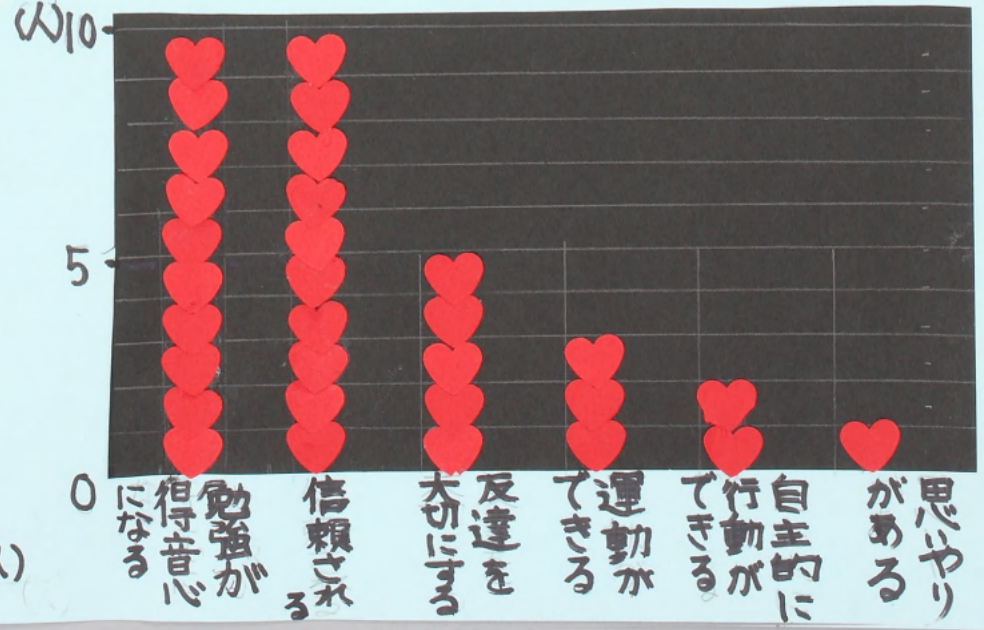 (人)10
5
0
勉強が
得意
になる
信頼され
る
友達を
大切にする
運動が
できる
自主的に
行動が
できる
思いやり
がある